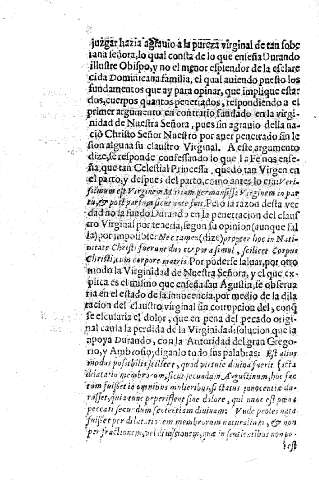 juzgar hazia agrauio à la pureza virginal de tan sobe
rana señora, lo qual consta de lo que enseña Durando
illustre Obispo, y no el menor esplendor de la esclare
cida Dominicana familia, el qual auiendo puesto los
fundamentos que ay para opinar, que implique estar
dos cuerpos quantos penetrados, respondiendo a el
primer argumento en contrario fundado en la virgi-
nidad de Nuestra Señora, pues sin agrauio della na-
ciò Christo Señor Nuestro por auer penetrado sin le
sion alguna su claustro Virginal. A este argumento
dize, se responde confessando lo que la Fè nos ense-
ña, que tan Celestial Princessa, quedò tan Virgen en
el parto, y despues del parto, como antes lo era:
tu, & post partum sicut ante
Pero la razon desta ver
dad no la fundò Durando en la penetracion del claus
tro Virginal por tenerla, segun su opinion (aunque fal
la) por impossible: Nec tamen (dize) propter hoc in Nati-
uitate Christi fuerunt duo corpora simul, scilicet Corpus
Christi, cum corpore matris. Por poderse saluar, por otro
modo la Virginidad de Nuestra Señora, y el que ex-
plica es el mismo que enseña san Agustin, se obserua
ria en el estado de la innocencia, por medio de la dila
racion del claustro virginal sin corrupcion del, con q̃
se escusaria el dolor, que en pena del pecado origi-
nal causa la perdida de la Virginidad: solucion que la
apoya Durando, con la Autoridad del gran Grego-
rio, y Ambrosio, diganlo todo sus palabras: Est alius
modus possibilis scilicet, quod virtute diuina fuerit facta
dilatatio membrorum, sicut secundum Augustinum, hoc fec
tum fuisset in omnibus mulieribus, si status innocentiæ du-
rasset, quia tunc peperissent sine dolore, qui nunc est pœna
peccati secundum sententiam diuinam: Vnde proles nata
fuisset per dilatationem membrorum naturalem, & non
per fractionem, vel diuisionem, quæ in sensitiuis non po-
test